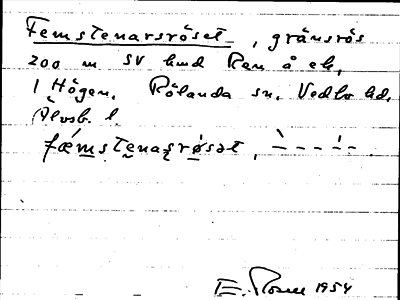 Femstenarsröset, gränsrös
200 m SV hmd Ren å ek,
i Högen. Rölanda sn. Vedbo hd.
Älvsb. l.
fǽmste̮nasrø̀sət,
1954